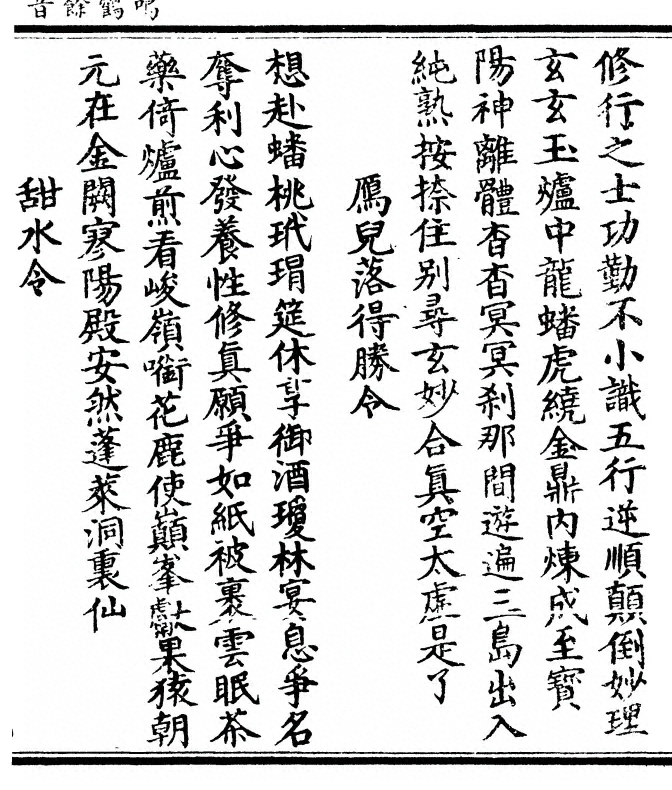 鳴鶴餘音
修行之士功勤不小識五行逆順顛倒妙理
玄玄玉爐中龍蟠虎繞金鼎内煉成至寳
陽神離體杳杳冥冥刹那間遊遍三島出入
純熟按捺住别尋玄妙合眞空太虚是了
鴈兒落得勝令
想赴蟠桃玳瑁筵休訝御酒瓊林宴息爭名
奪利心發養性修眞願爭如紙被裹雲眠茶
藥倚爐煎看峻嶺啣花鹿使巔峯獻果猿朝
元在金闕寥陽殿安然蓬萊洞裏仙
甜水令